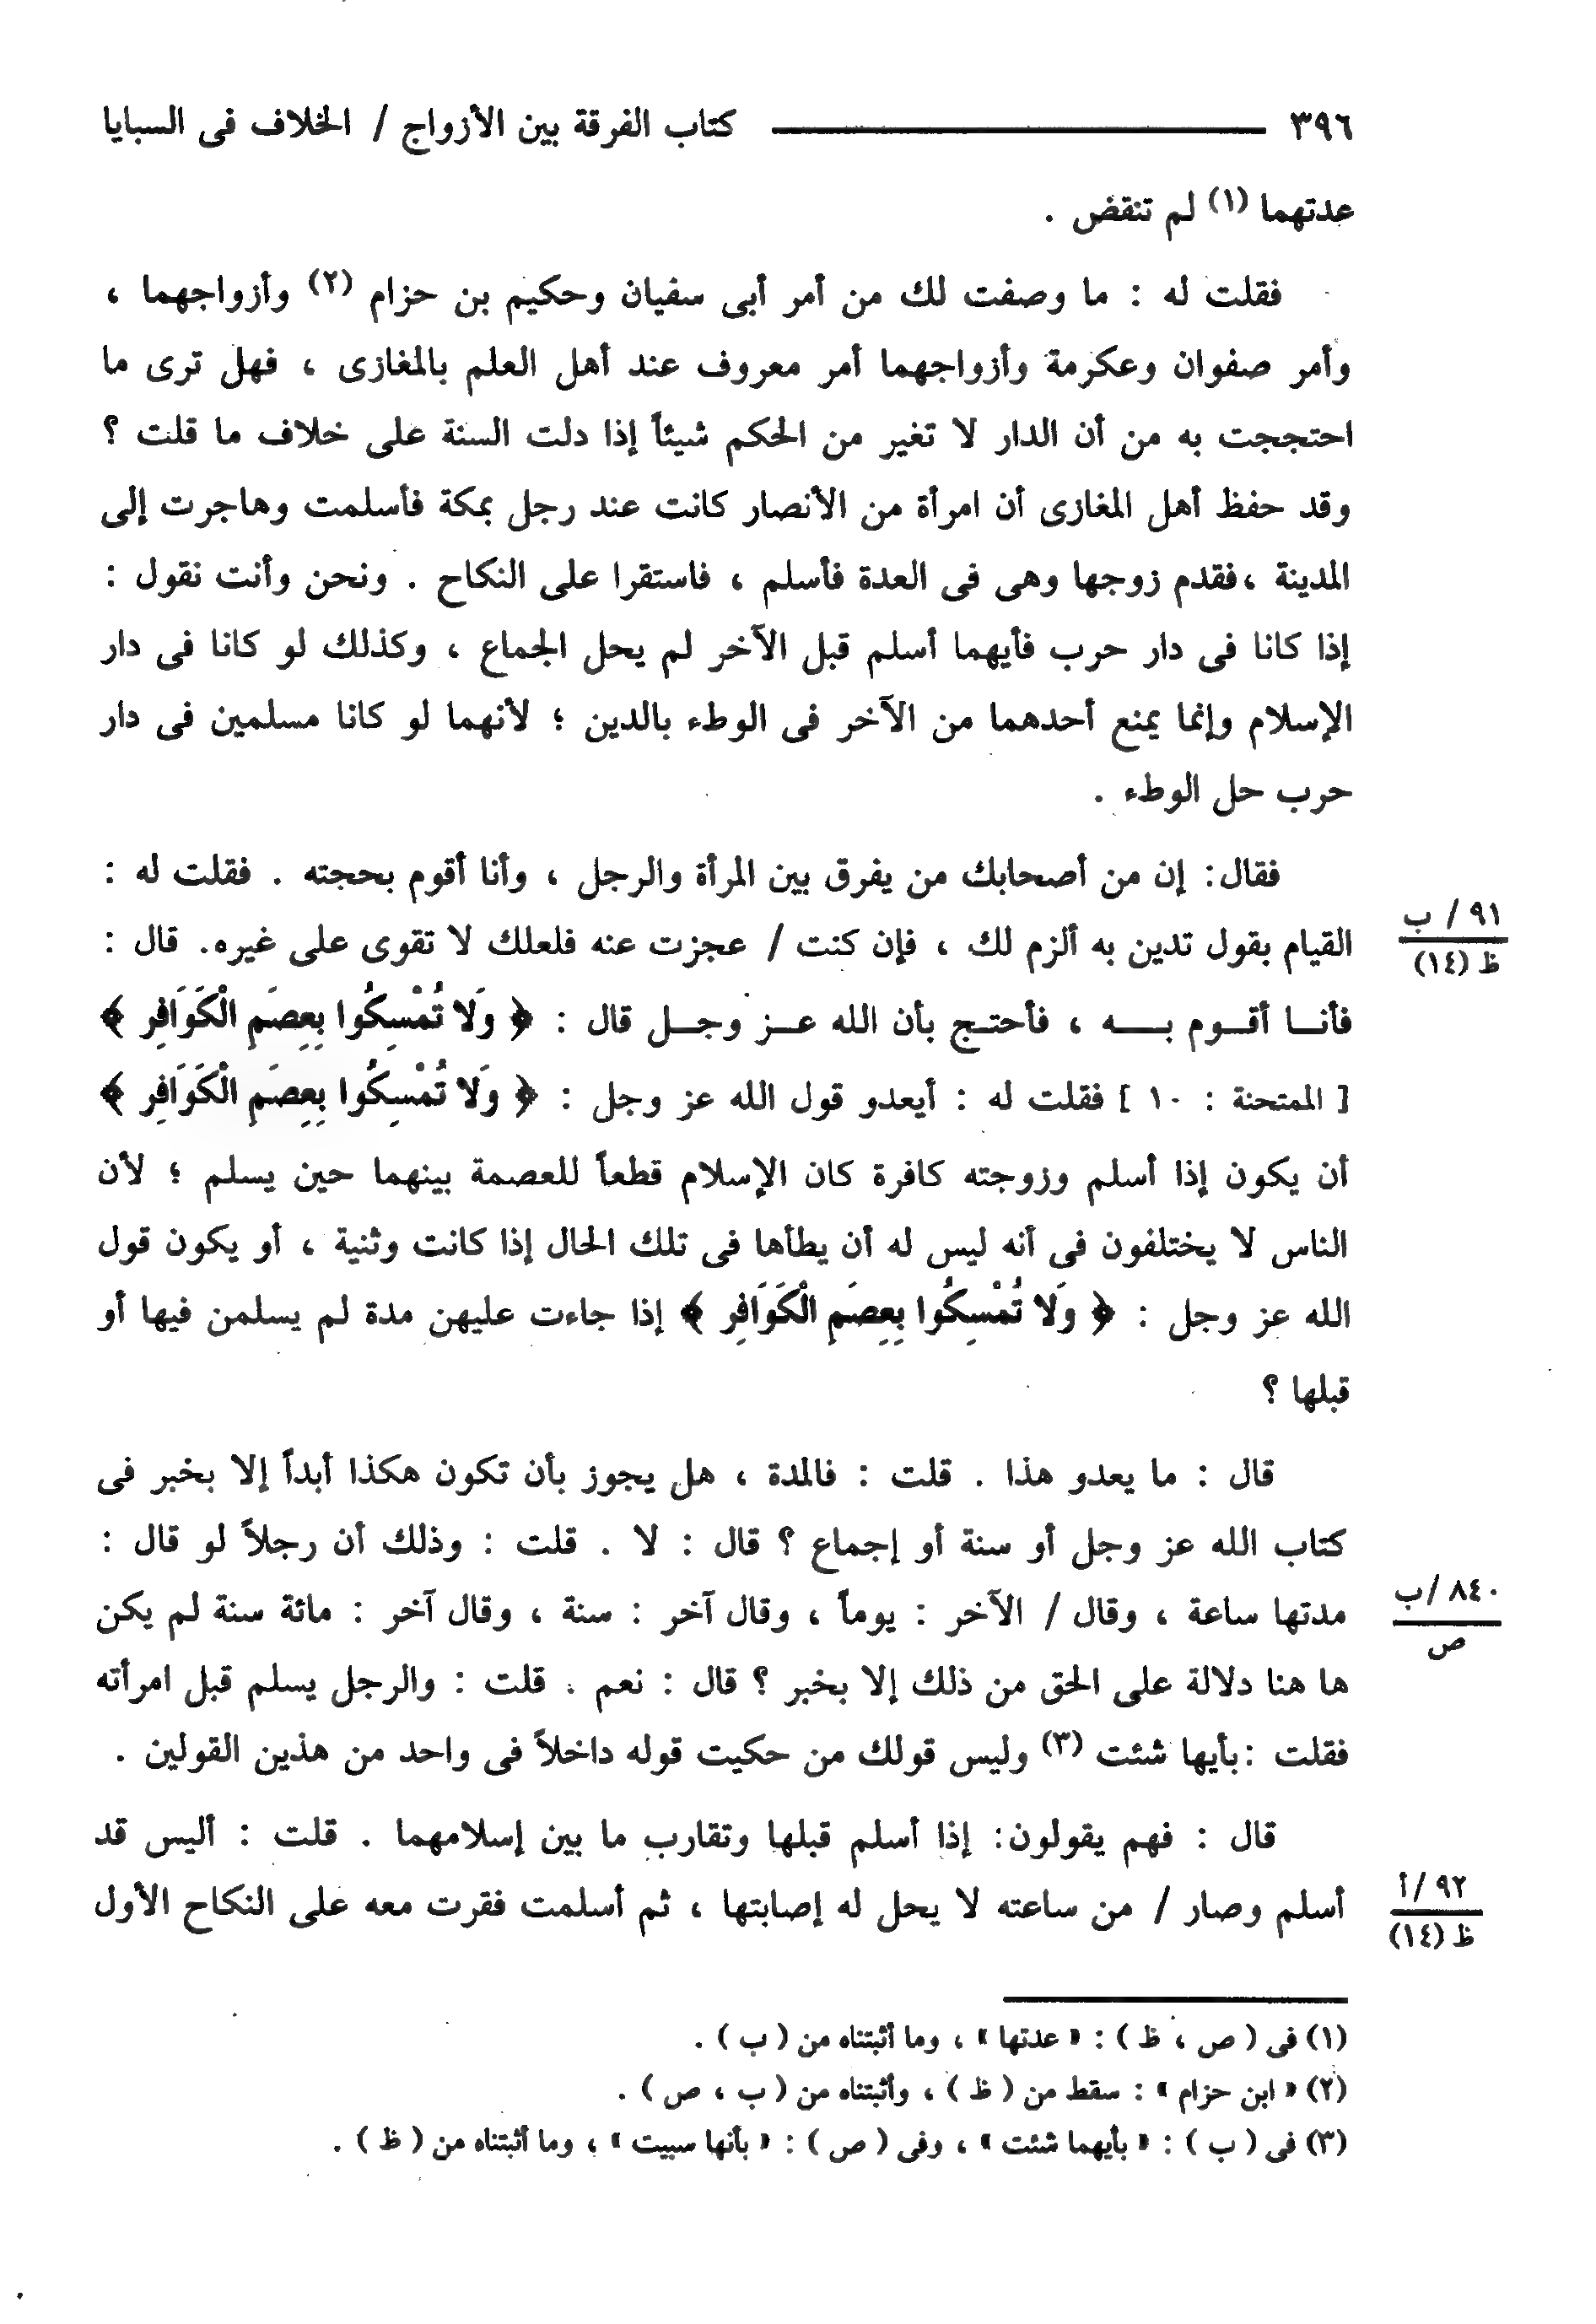 ٣٩٦ كتاب الفرقة بين الأزواج / الخلاف فى السبايا
عدتهما (١) لم تنقض .
فقلت له : ما وصفت لك من أمر أبى سفيان وحكيم بن حزام (٢) وأزواجهما ،
وأمر صفوان وعكرمة وأزواجهما أمر معروف عند أهل العلم بالمغازى ، فهل ترى ما
احتججت به من أن الدار لا تغير من الحكم شيئاً إذا دلت السنة على خلاف ما قلت ؟
وقد حفظ أهل المغازى أن امرأة من الأنصار كانت عند رجل بمكة فأسلمت وهاجرت إلى
المدينة ،فقدم زوجها وهى فى العدة فأسلم ، فاستقرا على النكاح . ونحن وأنت نقول :
إذا كانا فى دار حرب فأيهما أسلم قبل الآخر لم يحل الجماع ، وكذلك لو كانا فى دار
الإسلام وإنما يمنع أحدهما من الآخر فى الوطء بالدين ؛ لأنهما لو كانا مسلمين فى دار
حرب حل الوطء .
فقال: إن من أصحابك من يفرق بين المرأة والرجل ، وأنا أقوم بحجته . فقلت له :
القيام بقول تدين به ألزم لك ، فإن كنت / عجزت عنه فلعلك لا تقوى على غيره. قال :
٩١ / ب
ظ (١٤)
فأنــا أقــوم بــــه ، فأحتـج بأن الله عــز وجــل قال : ﴿ وَلا تُمْسِكُوا بِعِصَمِ الْكَوَافِرِ ﴾
[ الممتحنة : ١٠ ] فقلت له : أيعدو قول الله عز وجل : ﴿ وَلا تُمْسِكُوا بِعِصَمِ الْكَوَافِرِ ﴾
أن يكون إذا أسلم وزوجته كافرة كان الإسلام قطعاً للعصمة بينهما حين يسلم ؛ لأن
الناس لا يختلفون فى أنه ليس له أن يطأها فى تلك الحال إذا كانت وثنية ، أو يكون قول
الله عز وجل : ﴿ وَلا تُمْسِكُوا بِعِصَمِ الْكَوَافِرِ ﴾ إذا جاءت عليهن مدة لم يسلمن فيها أو
قبلها ؟
قال : ما يعدو هذا . قلت : فالمدة ، هل يجوز بأن تكون هكذا أبداً إلا بخبر فى
كتاب الله عز وجل أو سنة أو إجماع ؟ قال : لا . قلت : وذلك أن رجلاً لو قال :
مدتها ساعة ، وقال / الآخر : يوماً ، وقال آخر : سنة ، وقال آخر : مائة سنة لم يكن
٨٤٠ /ب
ص
ها هنا دلالة على الحق من ذلك إلا بخبر ؟ قال : نعم . قلت : والرجل يسلم قبل امرأته
فقلت :بأيها شئت (٣) وليس قولك من حكيت قوله داخلاً فى واحد من هذين القولين .
قال : فهم يقولون: إذا أسلم قبلها وتقارب ما بين إسلامهما . قلت : أليس قد
أسلم وصار / من ساعته لا يحل له إصابتها ، ثم أسلمت فقرت معه على النكاح الأول
٩٢ /أ
ظ (١٤)
(١) فى ( ص ، ظ ) : « عدتها » ، وما أثبتناه من ( ب ) .
(٢) « ابن حزام » : سقط من ( ظ ) ، وأثبتناه من ( ب ، ص ) .
(٣) فى ( ب ) : « بأيهما شئت » ، وفى ( ص ) : « بأنها سبيت » ، وما أثبتناه من ( ظ ) .